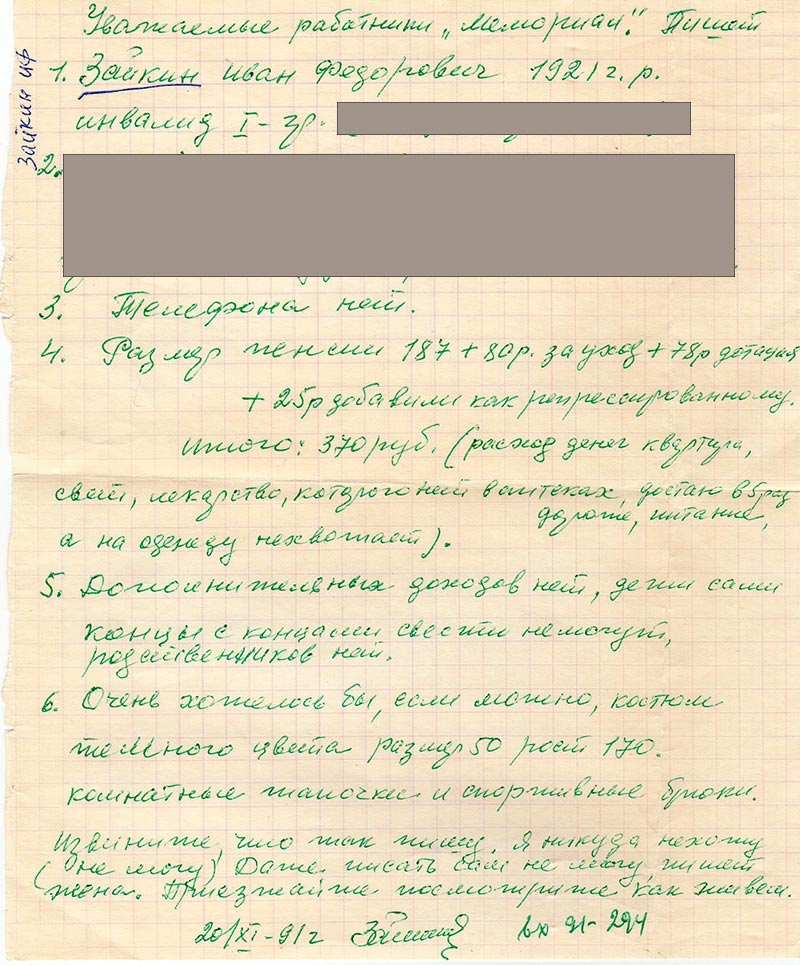 Уважаемые работники „Мемориал". Пишет
1. Зайкин Иван Федорович 1921 г. р.
инвалид I - гр.
Зайкин ИФ
2.
3. Телефона нет.
4. Размер пенсии 187 + 80р. за уход + 78р дотация
+ 25р добавили как репрессированному.
итого: 370 руб. (расход денег квартира,
свет, лекарство, которого нет в аптеках, достаю в 5 раз
дороже, питание,
а на одежду нехватает).
5. Дополнительных доходов нет, дети сами
концы с концами свести немогут,
родственников нет.
6. Очень хотелось бы, если можно, костюм
темного цвета размер 50 рост 170.
комнатные тапочки и спортивные брюки.
Извините, что так пишу. Я никуда нехожу
(не могу) Даже писать сам не могу пишет
жена. Приезжайте посмотрите как живем.
20/XI-91г вх 91-294